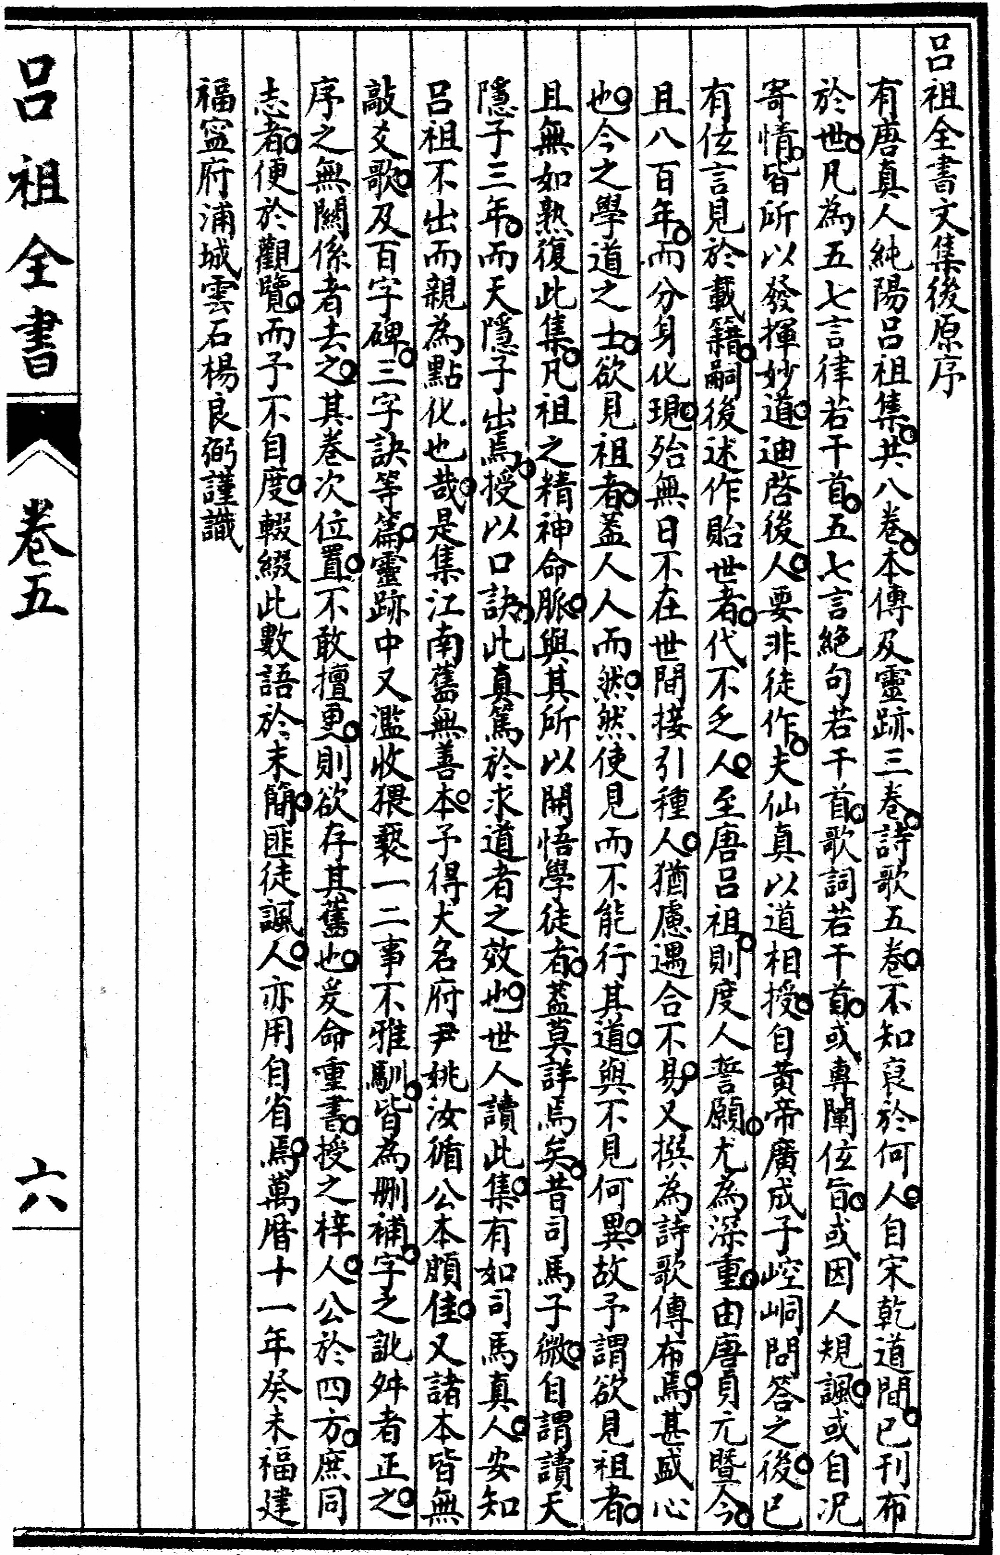 呂祖全書文集後原序
有唐真人純陽呂祖集。共八卷。本傳及靈跡三卷。詩歌五卷。不知裒於何人。自宋乾道間。已刊布
於世。凡為五七言律若干首。五七言絕句若干首。歌詞若干首。或專闡伭旨。或因人規諷。或自況
寄情。皆所以發揮妙道。迪啓後人。要非徒作。夫仙真以道相授。自黃帝廣成子崆峒問答之後。已
有伭言見於載籍。嗣後述作貽世者。代不乏人。至唐呂祖。則度人誓願。尤為深重。由唐貞元暨今。
且八百年。而分身化現。殆無日不在世間接引種人。猶慮遇合不易。又撰為詩歌傳布焉。甚盛心
也。今之學道之士。欲見祖者。蓋人人而然。然使見而不能行其道。與不見何異。故予謂欲見祖者。
且無如熟復此集。凡祖之精神命脈。與其所以開悟學徒者。蓋莫詳焉矣。昔司馬子微。自謂讀天
隱子三年。而天隱子出焉。授以口訣。此真篤於求道者之效也。世人讀此集。有如司馬真人。安知
呂祖不出而親為點化也哉。是集江南舊無善本。予得大名府尹姚汝循公本頗佳。又諸本皆無
敲爻歌。及百字碑。三字訣等篇。靈跡中又濫收猥褻一二事不雅馴。皆為刪補。字之訛舛者正之。
序之無關係者去之。其卷次位置。不敢擅更。則欲存其舊也。爰命重書。授之梓人。公於四方。庶同
志者。便於觀覽。而予不自度。輟綴此數語於末簡。匪徒諷人。亦用自省焉。萬曆十一年癸未福建
福寧府浦城雲石楊良弼謹識
呂祖全書
卷五
六